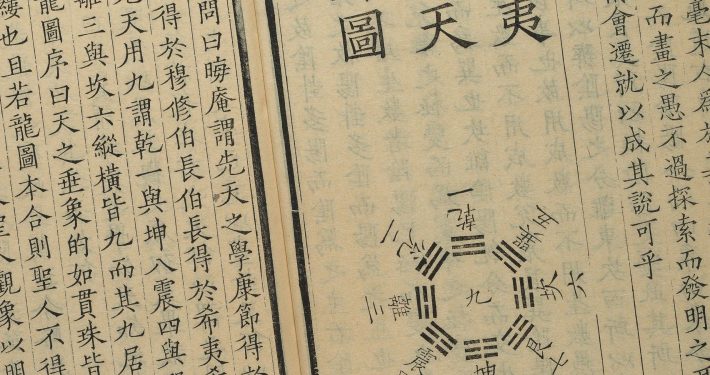 毫末人為於
而畫之愚不過探索而發明之
會遷就以成其說可乎
夷
天
圖
一乾
兌二
離三
震
坤
艮七
坎六
巽五
九
問曰晦庵謂先天之學康節得於
得於穆修伯長伯長得於希夷希
天用九謂乾一與坤八震四與
離三與坎六縱橫皆九而其九居
龍圖序曰天之垂象的如貫珠皆
縷也且若龍圖本合則聖人不得
觀象以明